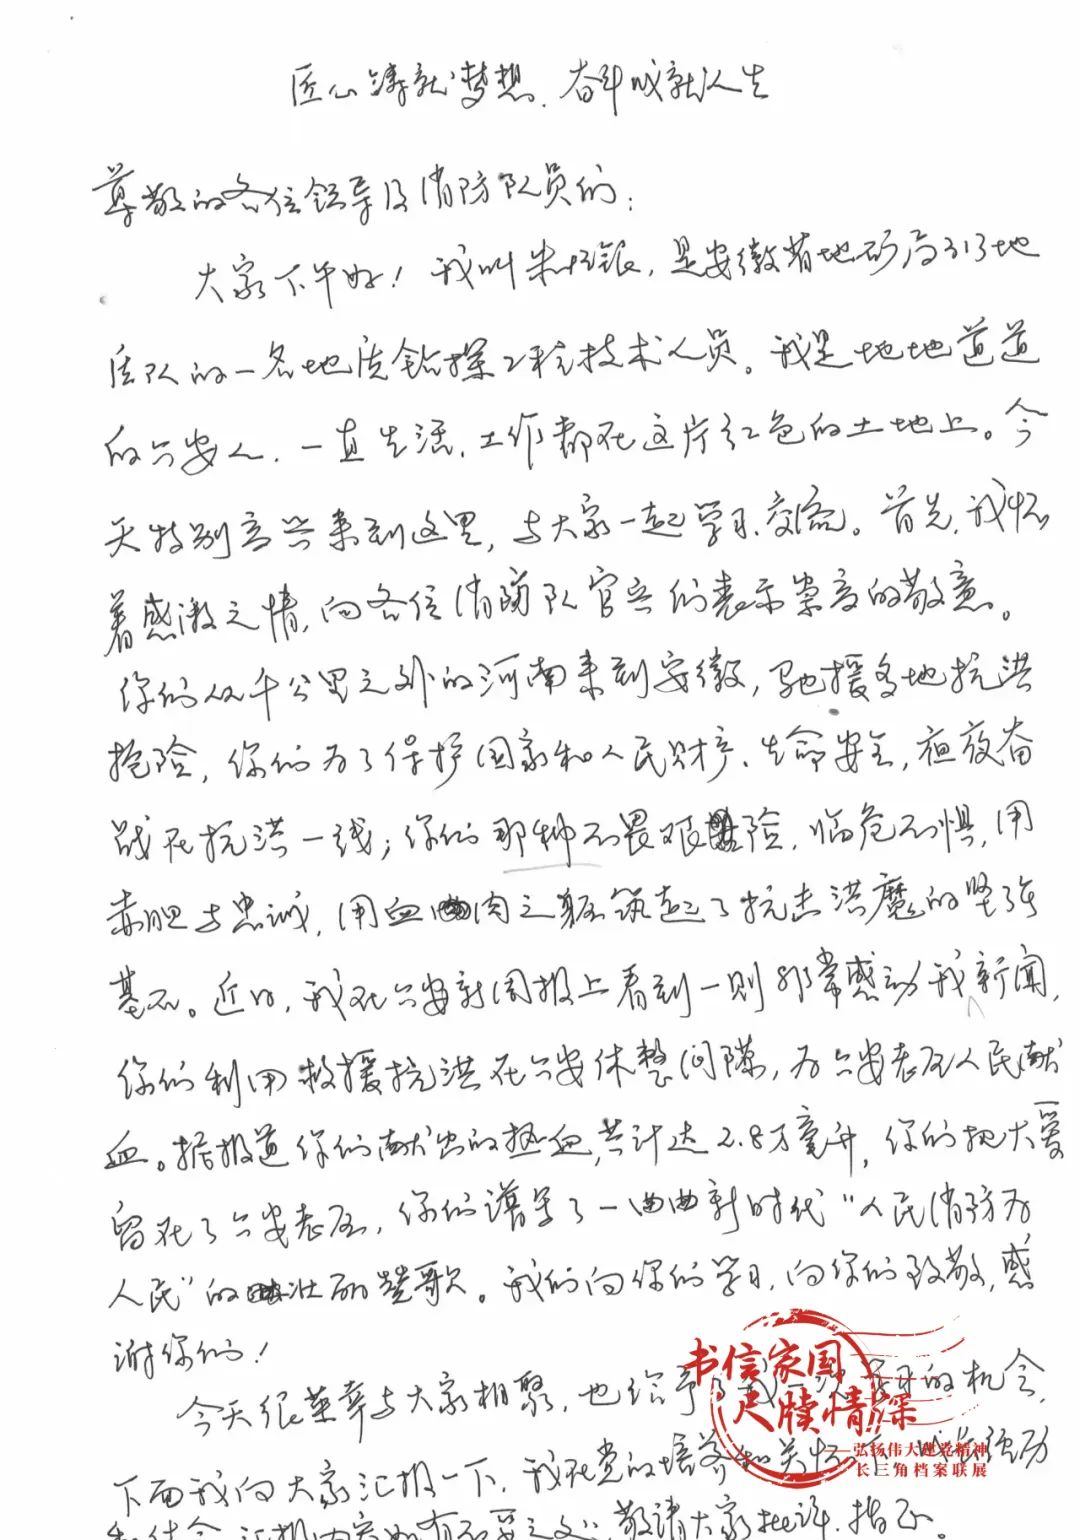 匠心铸就梦想、奋斗成就人生
尊敬的各位领导及消防队员们：
大家下午好！我叫朱恒银，是安徽省地矿局313地
质队的一名地质钻探工程技术人员。我是地地道道
的六安人，一直生活、工作都在这片红色的土地上。今
天特别高兴来到这里，与大家一起学习、交流。首先，我怀
着感激之情，向各位消防队官兵们表示崇高的敬意。
你们从千公里之外的河南来到安徽，驰援多地抗洪
抢险，你们为了保护国家和人民财产、生命安全，夜放奋
战在抗洪一线；你们那种不畏艰险，临危不惧，用
赤胆与忠诚，用血肉之躯筑起了抗击洪魔的坚强
基石。近日，我在六安新闻报上看到一则非常感动我新闻，
你们利用救援抗洪在六安休整间隙，为六安老区人民献
血。据报道你们献出的热血，共计达2.8万毫升，你们把大爱
留在了六安老区，你们谱写了一曲曲新时代“人民消防为
人民”的壮丽赞歌。我们向你们学习，向你们致敬，感
谢你们！
今天很荣幸与大家相聚，也给予了我一次学习的机会，
下面我向大家汇报一下，我在党的培养和关怀下
敬请大家批评、指正。
书信家国
尺牍情深
——弘扬伟大建党精神
长三角档案联展